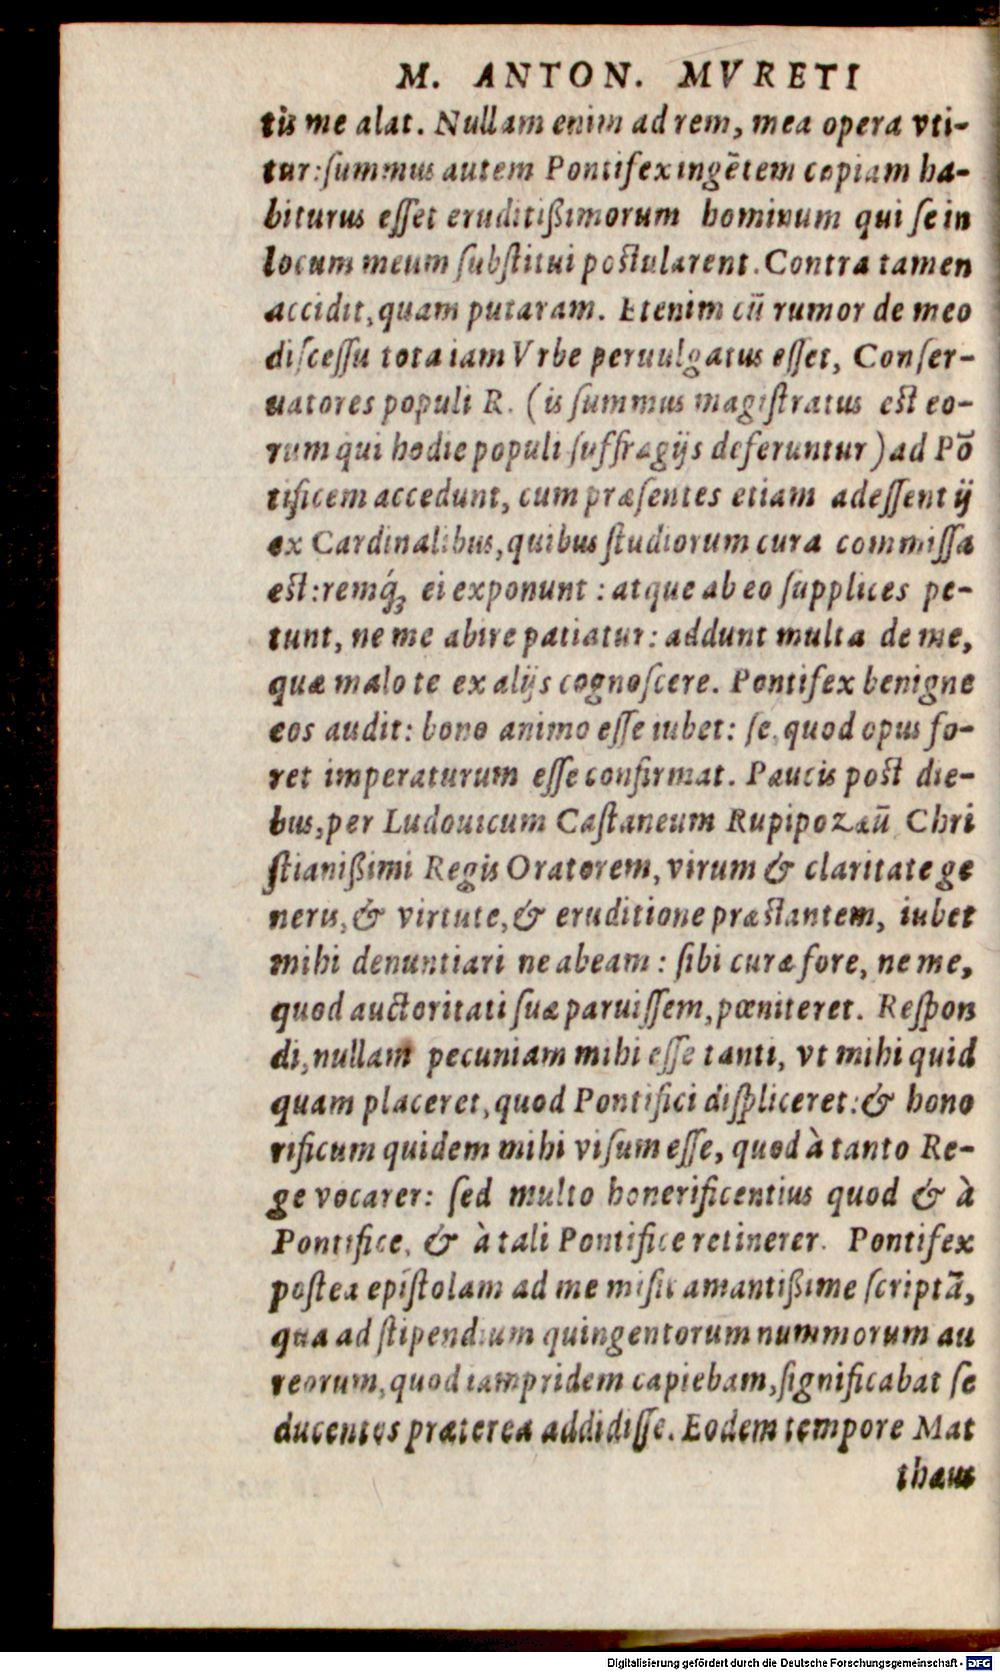 M. ANTON. MVRETI
tis me alat. Nullam enim ad rem, mea opera vti-
tur: ſummus autem Pontifex ingẽtem copiam ha-
biturus eſſet eruditißimorum hominum qui ſe in
locum meum ſubſtitui poſtularent. Contra tamen
accidit, quam putaram. Etenim cũ rumor de meo
diſceſſu tota iam Vrbe peruulgatus eſſet, Conſer-
uatores populi R. (is ſummus magiſtratus eſt eo-
rum qui hodie populi ſuffragijs deferuntur) ad Põ
tificem accedunt, cum præſentes etiam adeſſent ij
ex Cardinalibus, quibus ſtudiorum cura commiſſa
eſt: remq́ꝫ ei exponunt: atque ab eo ſupplices pe-
tunt, ne me abire patiatur: addunt multa de me,
quæ malo te ex alijs cognoſcere. Pontifex benigne
eos audit: bono animo eſſe iubet: ſe, quod opus fo-
ret imperaturum eſſe confirmat. Paucis poſt die-
bus, per Ludouicum Caſtaneum Rupipozæũ Chri
ſtianißimi Regis Oratorem, virum & claritate ge
neris, & virtute, & eruditione præſtantem, iubet
mihi denuntiari ne abeam: ſibi curæ fore, ne me,
quod auctoritati ſuæ paruiſſem, pœniteret. Reſpon
di, nullam pecuniam mihi eſſe tanti, vt mihi quid
quam placeret, quod Pontifici diſpliceret: & hono
rificum quidem mihi viſum eſſe, quod à tanto Re-
ge vocarer: ſed multo honorificentius quod & à
Pontifice, & à tali Pontifice retinerer. Pontifex
poſtea epiſtolam ad me miſit amantißime ſcriptã,
qua ad ſtipendium quingentorum nummorum au
reorum, quod iampridem capiebam, ſignificabat ſe
ducentos præterea addidiſſe. Eodem tempore Mat
thæus
Digitalisierung gefördert durch die Deutsche Forschungsgemeinschaft - DFG